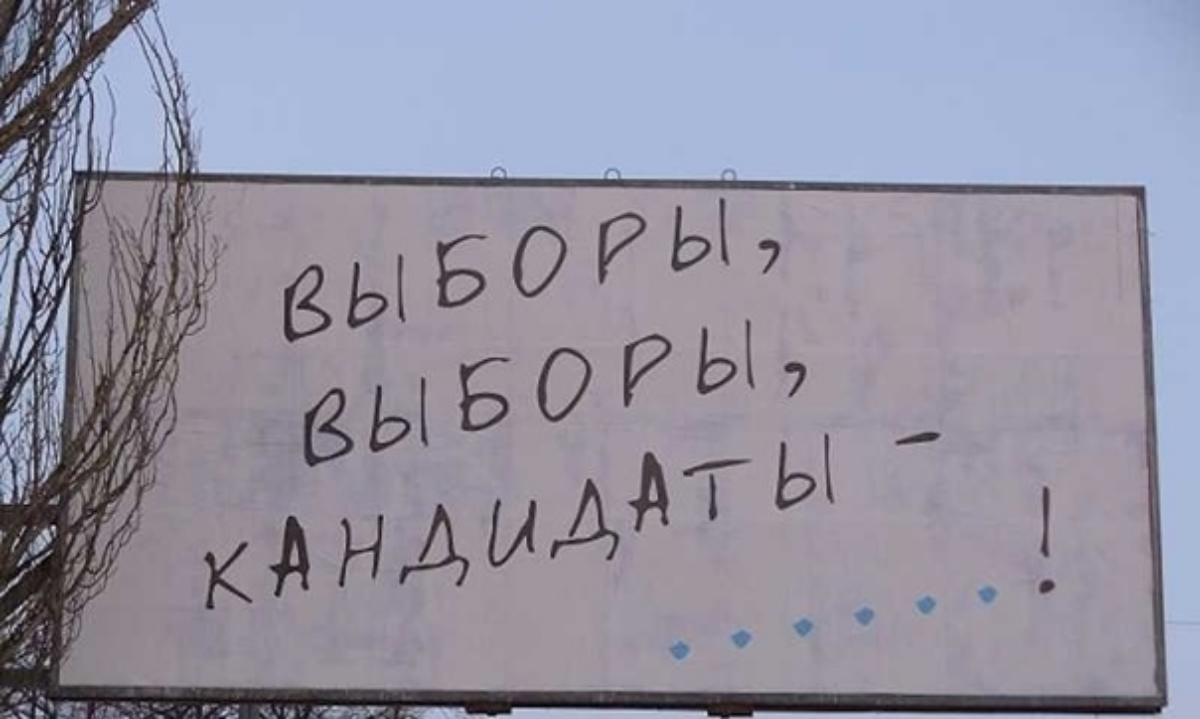 ВЫБОРЫ,
ВЫБОРЫ,
КАНДИДАТЫ -
......!